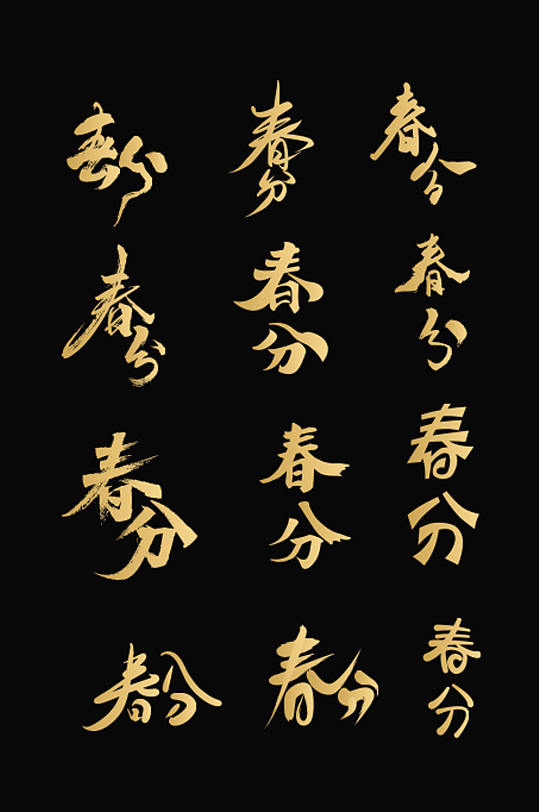 春分
春分
春分
春分
春分
春分
春分
春分
春分
春分
春分
春分